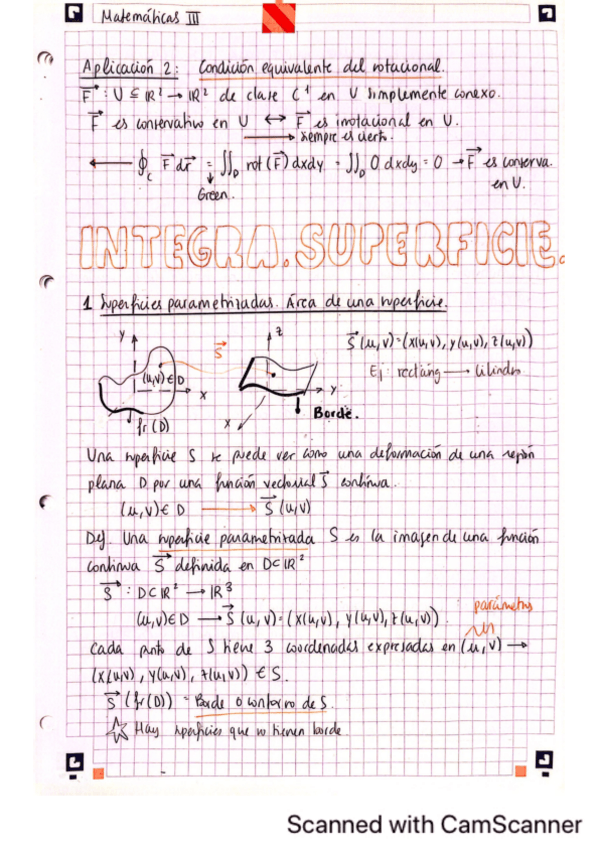 Matemáticas III
Aplicación 2: Condición equivalente del rotacional.
F⃗ : U ⊆ ℝ² → ℝ² de clase C¹ en U simplemente conexo.
F⃗ es conservativo en U ↔ F⃗ es irrotacional en U.
→ siempre es cierto.
← ∮c F⃗ dr⃗ = ∬D rot (F⃗) dxdy = ∬D 0 dxdy = 0 → F⃗ es conserva.
Green. en U.
INTEGRA. SUPERFICIE.
1 Superficies parametrizadas. Área de una superficie.
y z
S⃗ S⃗(u,v)=(x(u,v), y(u,v), z(u,v))
(u,v)∈D x y Ej: rectáng → cilindro
fr (D) x Borde.
Una superficie S se puede ver como una deformación de una región
plana D por una función vectorial S⃗ continua.
(u,v)∈ D → S⃗ (u,v)
Def. Una superficie parametrizada S es la imagen de una función
continua S⃗ definida en D⊂ℝ²
S⃗ : D⊂ℝ² → ℝ³
(u,v)∈D → S⃗ (u,v)=(x(u,v), y(u,v), z(u,v)).
parámetros
Cada punto de S tiene 3 coordenadas expresadas en (u,v) →
(x(u,v), y(u,v), z(u,v)) ∈ S.
S⃗ (fr(D)) = Borde o contorno de S.
☆ Hay superficies que no tienen borde
Scanned with CamScanner